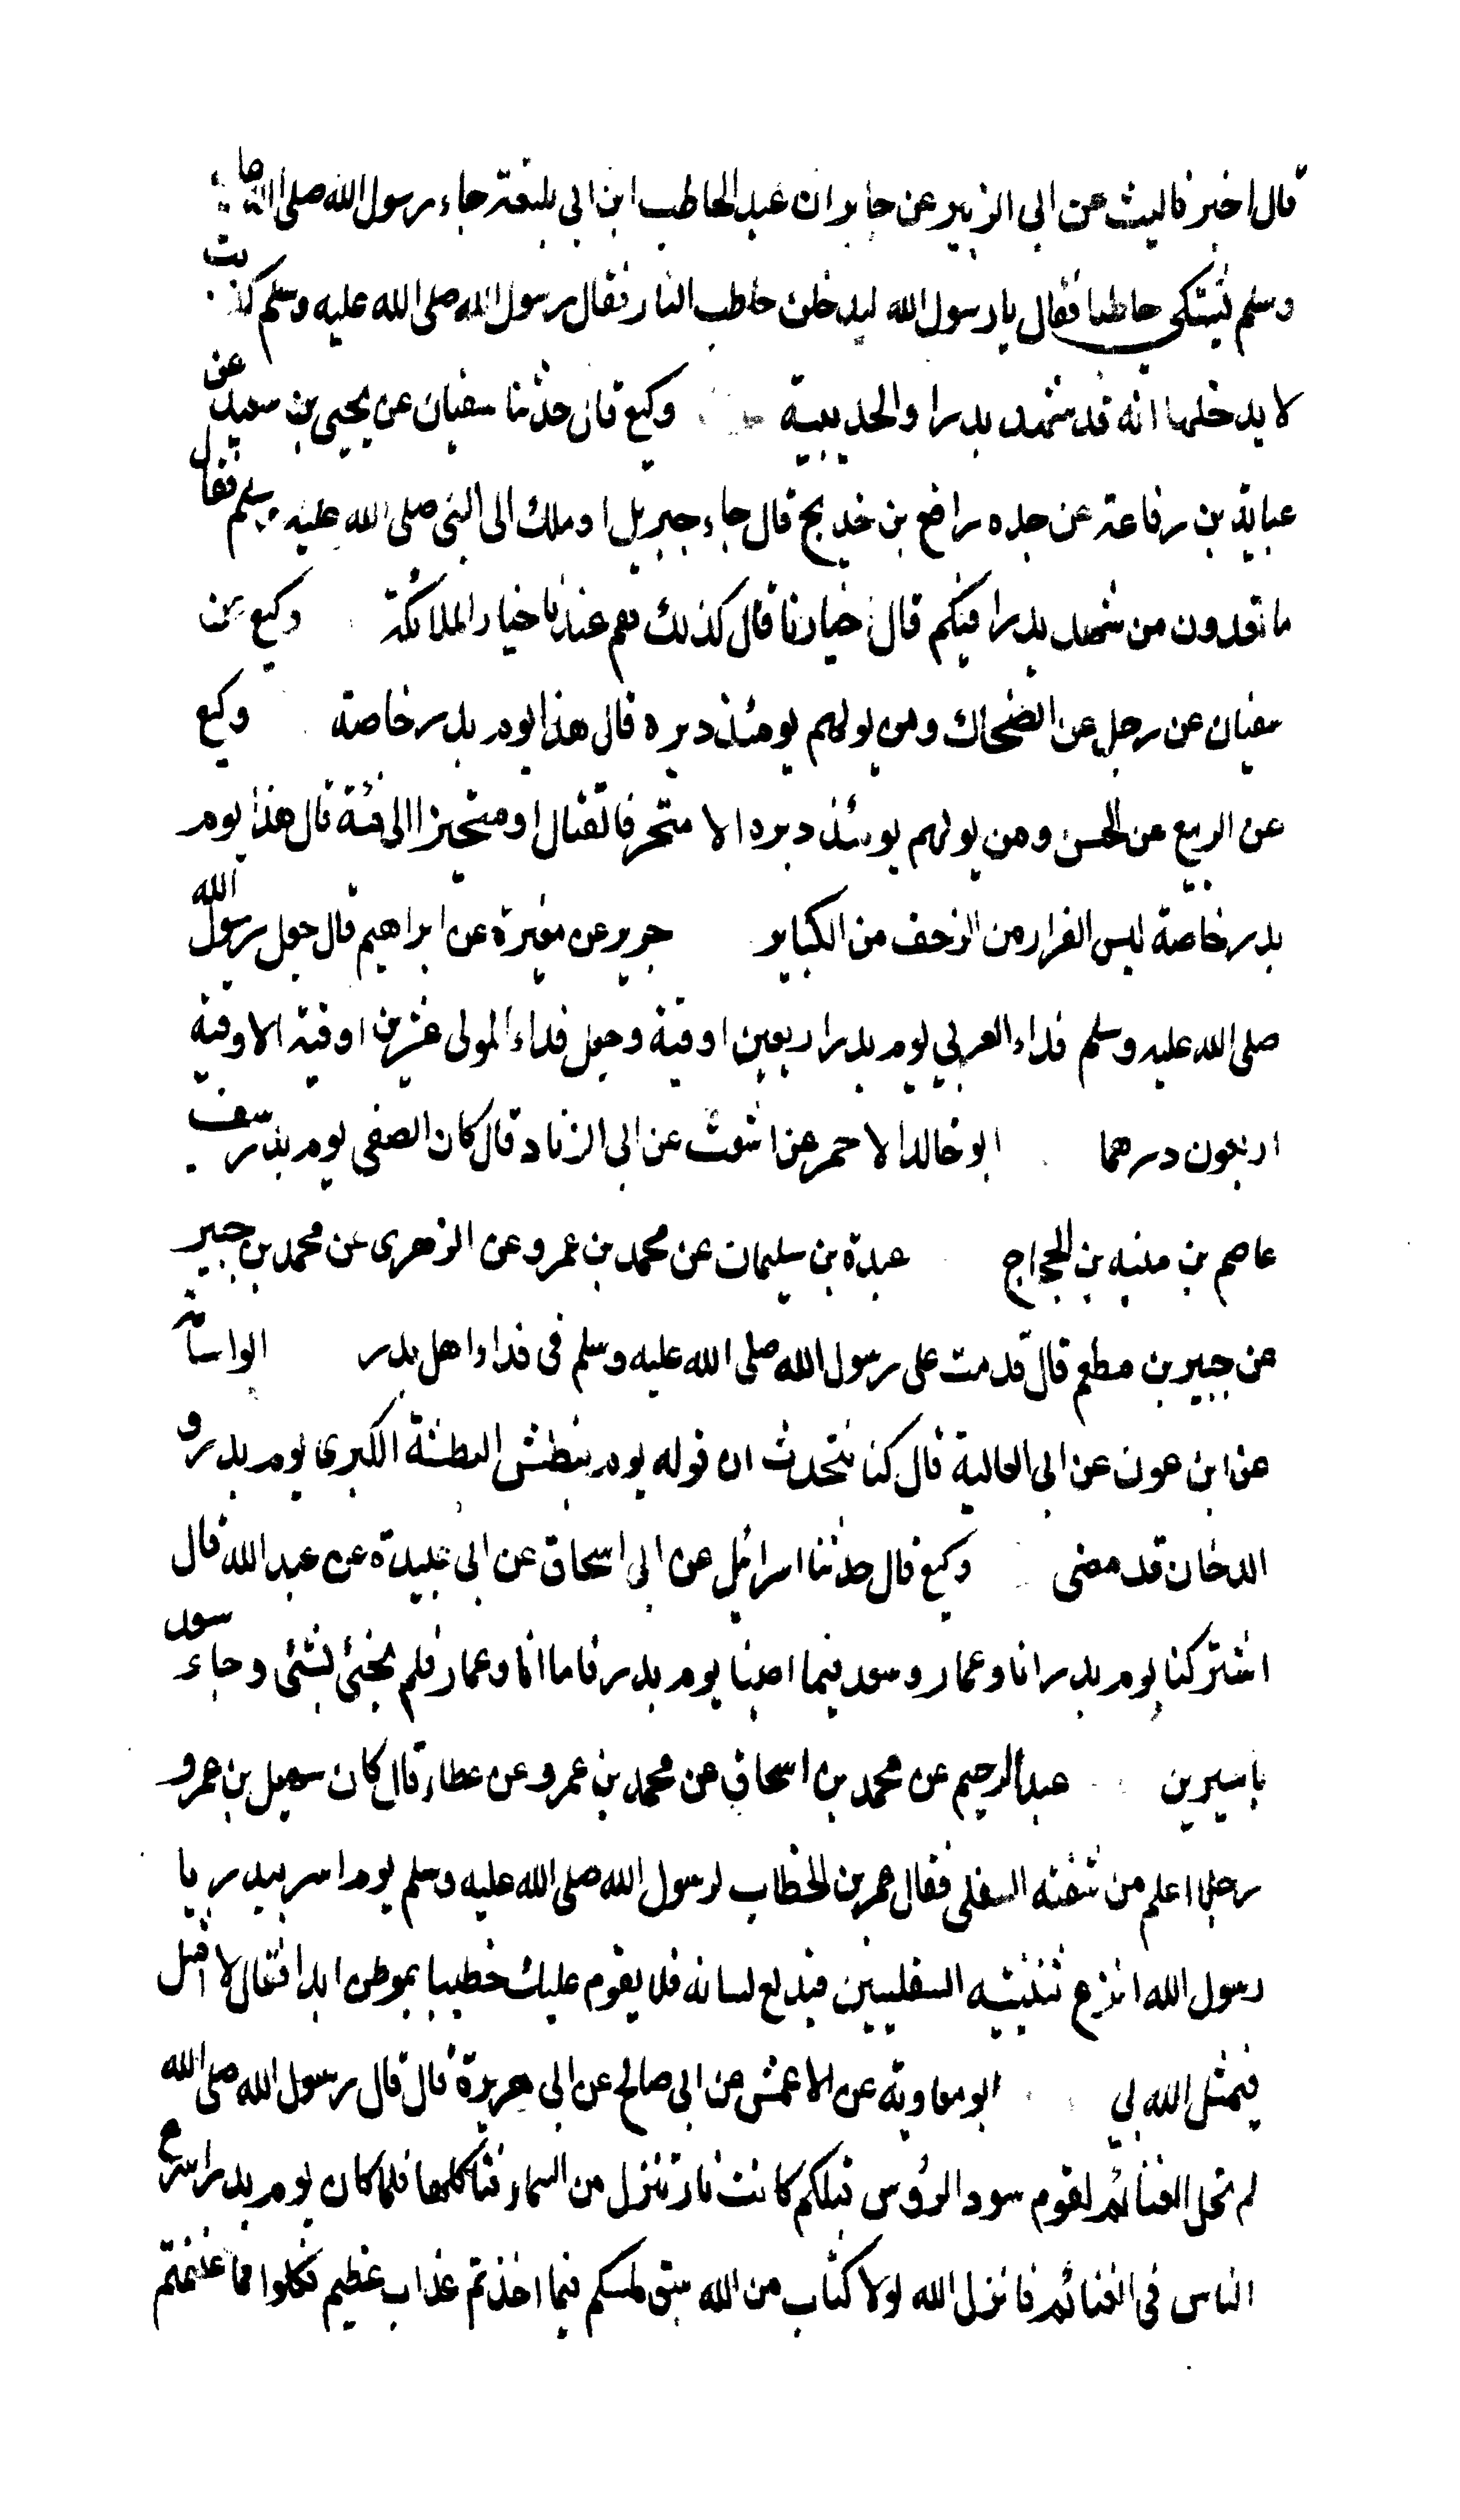 قال اخبرنا ليث عن ابى الزبير عن جابر ان عبد الحاطب ابن ابى بلتعة جاء رسول الله صلى الله
وسلم يشتكى حاطبا فقال يا رسول الله ليدخلن حاطب النار فقال رسول الله صلى الله عليه وسلم كذبت
لا يدخلها انه قد شهد بدرا والحديبية وكيع قال حدثنا سفيان عن يحيى بن سعيد عن
عباية بن رفاعة عن جده رافع بن خديج قال جاء جبريل او ملك الى النبى صلى الله عليه وسلم فقال
ما تعدون من شهد بدرا فيكم قال خيارنا قال كذلك هم عندنا خيار الملائكة وكيع عن
سفيان عن رجل عن الضحاك ومن يولهم يومئذ دبره قال هذا يوم بدر خاصة وكيع
عن الربيع عن الحسن ومن يولهم يومئذ دبره الا متحرفا لقتال او متحيزا الى فئة قال هذا يوم
بدر خاصة ليس الفرار من الزحف من الكباير جرير عن مغيرة عن ابراهيم قال جعل رسول الله
صلى الله عليه وسلم فداء العربي يوم بدر اربعين اوقية وجعل فداء المولى عشرين اوقية الاوقية
اربعون درهما ابو خالد الاحمر عن اشعث عن ابى الزناد قال كان الصفى يوم بدر سيف
عاصم بن منبه بن الحجاج عبدة بن سليمان عن محمد بن عمرو عن الزهرى عن محمد بن جبير
عن جبير بن مطعم قال قدمت على رسول الله صلى الله عليه وسلم فى فداء اهل بدر ابو اسامة
عن ابن عون عن ابى العالية قال كنا نتحدث ان قوله يوم نبطش البطشة الكبرى يوم بدر و
الدخان قد مضى وكيع قال حدثنا اسرائيل عن ابى اسحاق عن ابى عبيدة عن عبد الله قال
اشتركنا يوم بدر انا وعمار وسعد فيما اصبنا يوم بدر فاما انا وعمار فلم نجئ بشئ وجاء سعد
باسيرين عبد الرحيم عن محمد بن اسحاق عن محمد بن عمرو عن عطاء قال كان سهيل بن عمرو
رجلا اعلم من شفته السفلى فقال عمر بن الخطاب لرسول الله صلى الله عليه وسلم يوم اسر ببدر يا
رسول الله انزع ثنيتيه السفليين فيدلع لسانه فلا يقوم عليك خطيبا بموطن ابدا فقال لا امثل
فيمثل الله بي ابو معاوية عن الاعمش عن ابى صالح عن ابى هريرة قال قال رسول الله صلى الله
لم تحل الغنائم لقوم سود الرؤس قبلكم كانت نار تنزل من السماء فتاكلها فلما كان يوم بدر اسرع
الناس فى الغنائم فانزل الله لولا كتاب من الله سبق لمسكم فيما اخذتم عذاب عظيم فكلوا مما غنمتم